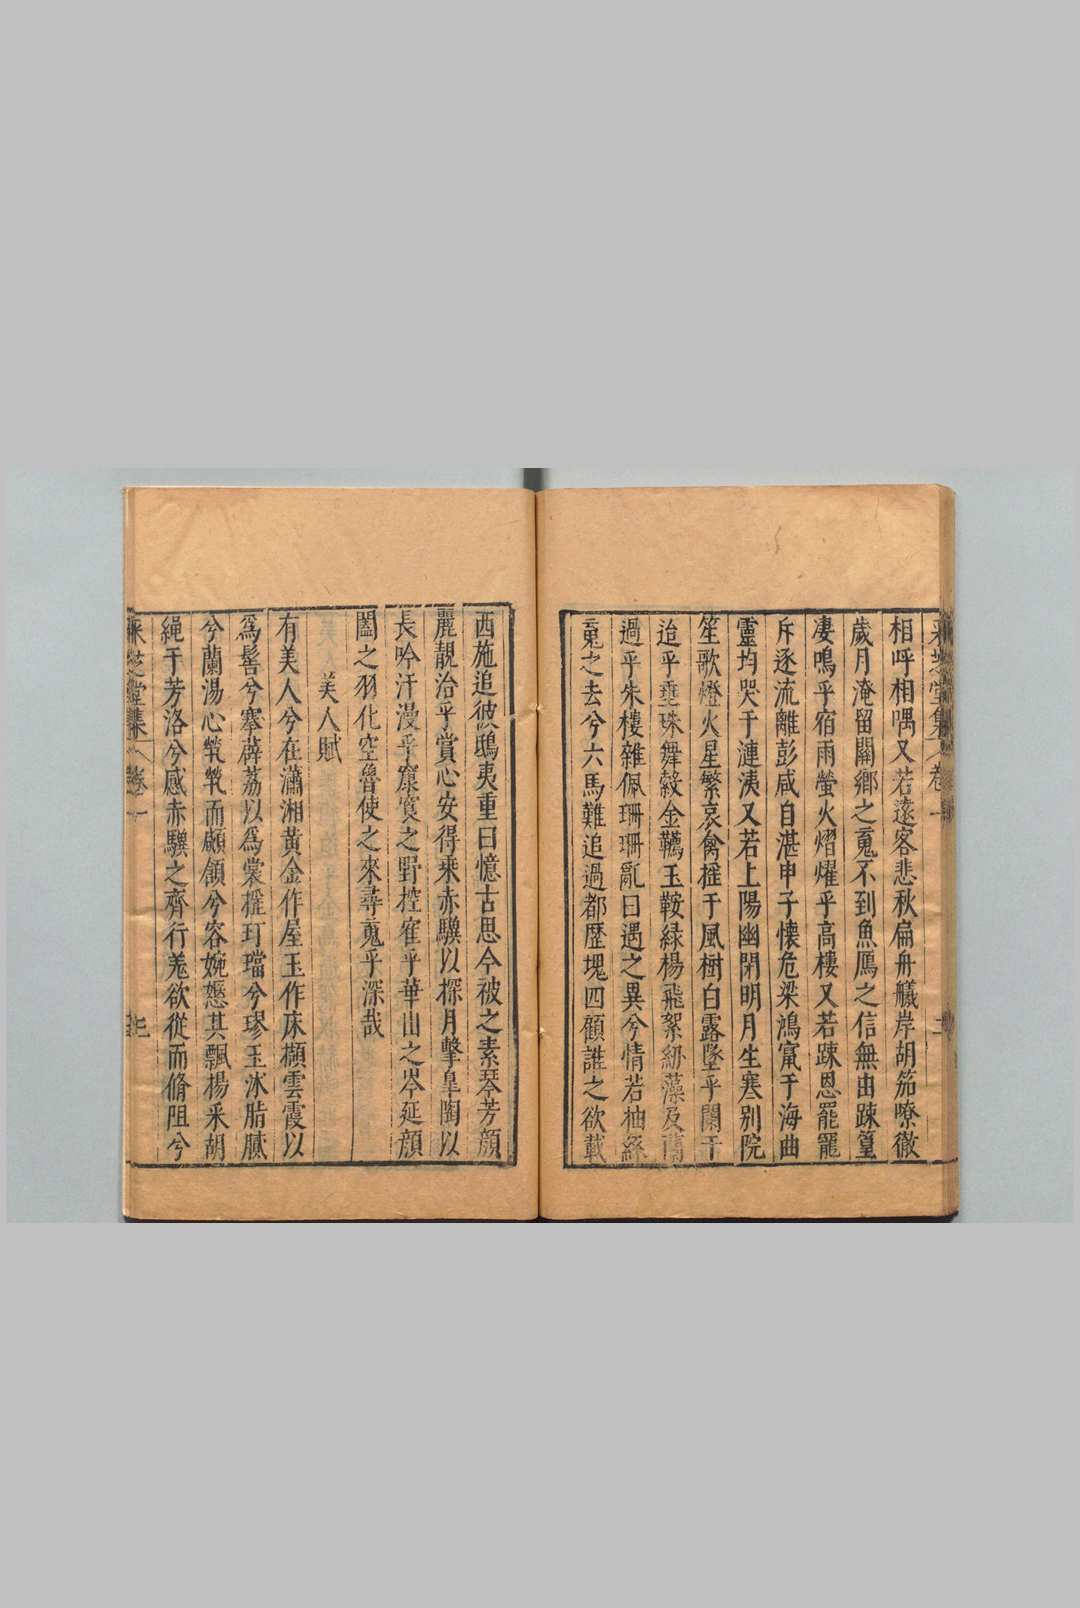 采芝堂集 卷一
相呼相喁又若遠客悲秋扁舟艤岸胡笳嘹徹
歲月淹留關鄉之䰟不到魚鴈之信無由踈篁
凄鳴乎宿雨螢火熠燿乎高樓又若踈恩罷寵
斥逐流離彭咸自湛申子懷危梁鴻竄于海曲
靈均哭于漣洟又若上陽幽閉明月生寒别院
笙歌燈火星繁哀禽摧于風樹白露墜乎闌干
迨乎垂珠舞縠金韉玉鞍緑楊飛絮紉藻及蘭
過乎朱樓雜佩珊珊亂曰遇之異兮情若柚綠
䰟之去兮六馬難追過都歴塊四顧誰之欲載
西施追彼鴟夷重曰憶古思今被之素琴芳顏
麗靚治乎賞心安得乘赤驥以探月擊皐陶以
長吟汗漫乎㝩㝗之野控寉乎華山之岑延顏
闔之羽化空魯使之來尋䰟乎深哉
美人賦
有美人兮在瀟湘黃金作屋玉作床擷雲霞以
爲髻兮搴薜荔以爲裳摧玎璫兮璆玉冰脂膩
兮蘭湯心煢煢而顑頷兮容婉戀其飄楊采胡
繩于芳洛兮感赤驥之齊行羌欲從而脩阻兮
采芝堂集 卷一